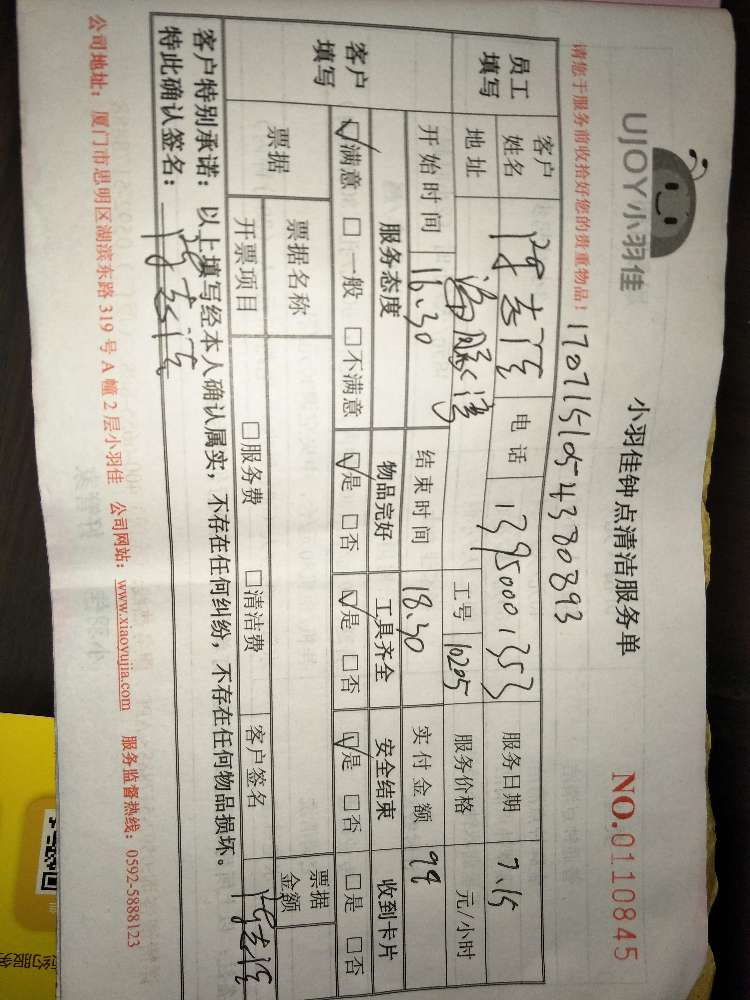 UJOY小羽佳
小羽佳钟点清洁服务单
NO.0110845
请您于服务前收拾好您的贵重物品！
1707151054380893
员工填写 客户姓名 电话 13950001353 服务日期 7.15
地址 工号 10205 服务价格 元/小时
客户填写 开始时间 16.30 结束时间 18.30 实付金额 98
服务态度 物品完好 工具齐全 安全结束 收到卡片
☑满意 □一般 □不满意 ☑是 □否 ☑是 □否 ☑是 □否 □是 □否
票据 票据名称 票据金额
开票项目 □服务费 □清洁费 客户签名
客户特别承诺：以上填写经本人确认属实，不存在任何纠纷，不存在任何物品损坏。
特此确认签名：
公司地址：厦门市思明区湖滨东路319号A幢2层小羽佳 公司网站：www.xiaoyujia.com 服务监督热线：0592-5888123